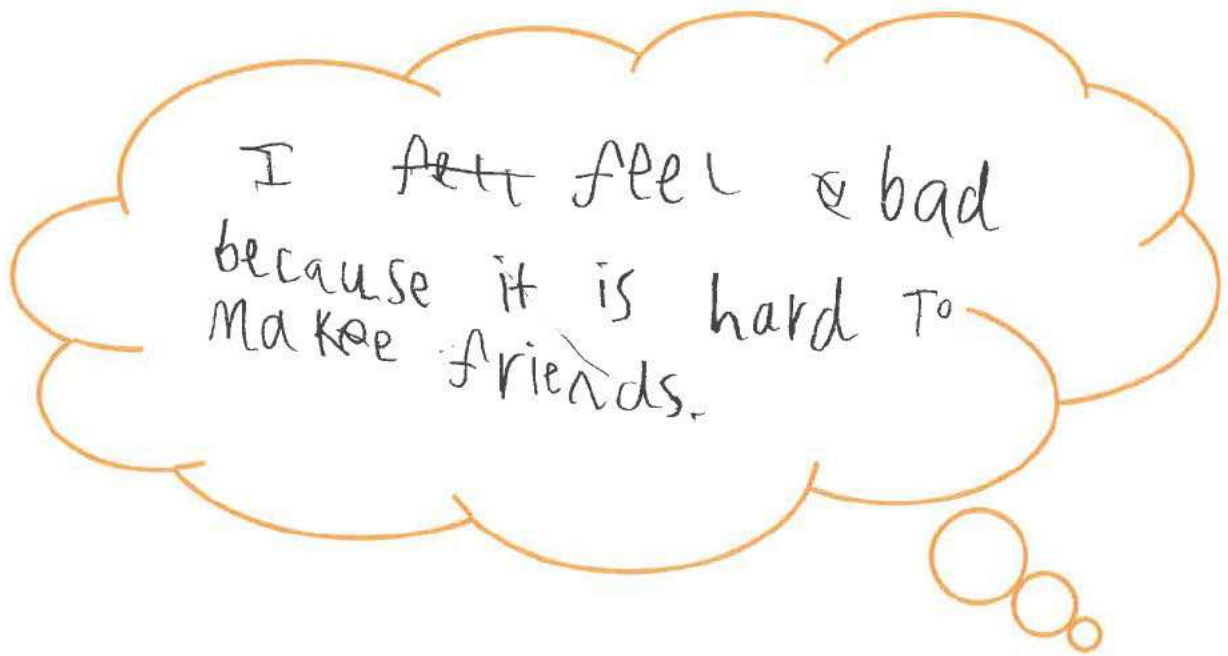 I feel bad
because it is hard To
Makee friends.